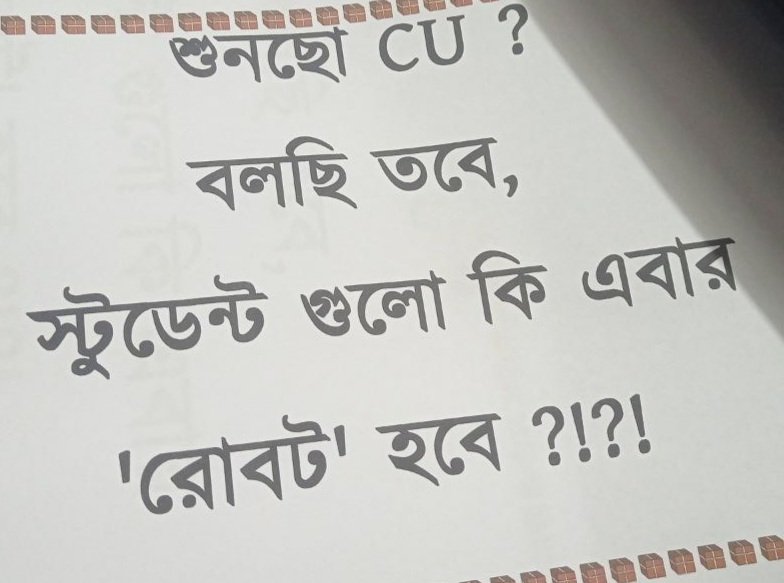 শুনছো CU ?
বলছি তবে,
স্টুডেন্ট গুলো কি এবার
'রোবট' হবে ?!?!